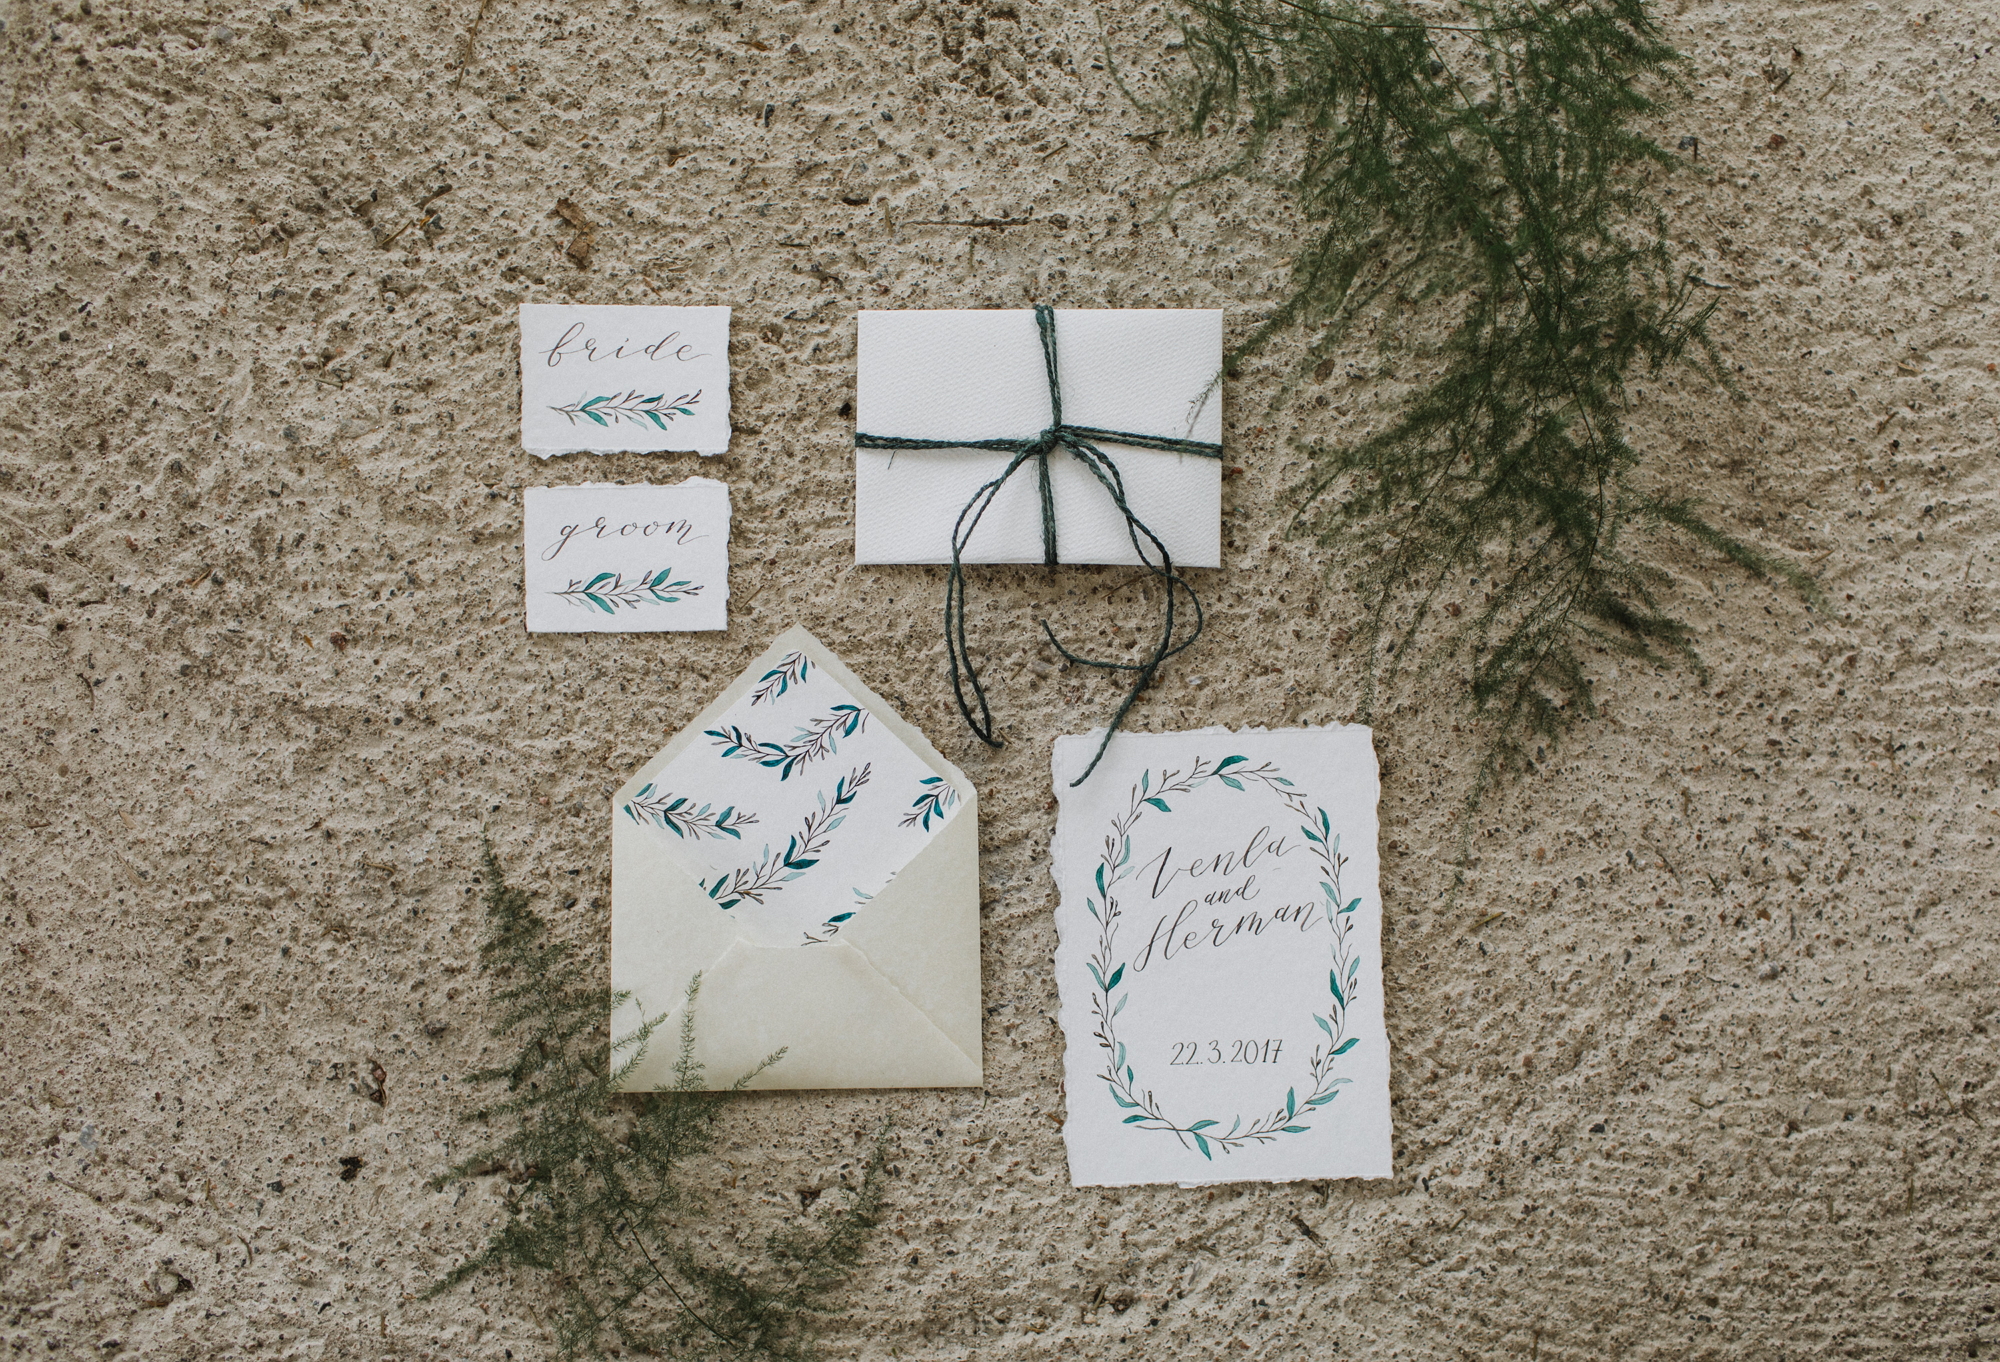 bride
groom
Venla
and
Herman
22.3.2017